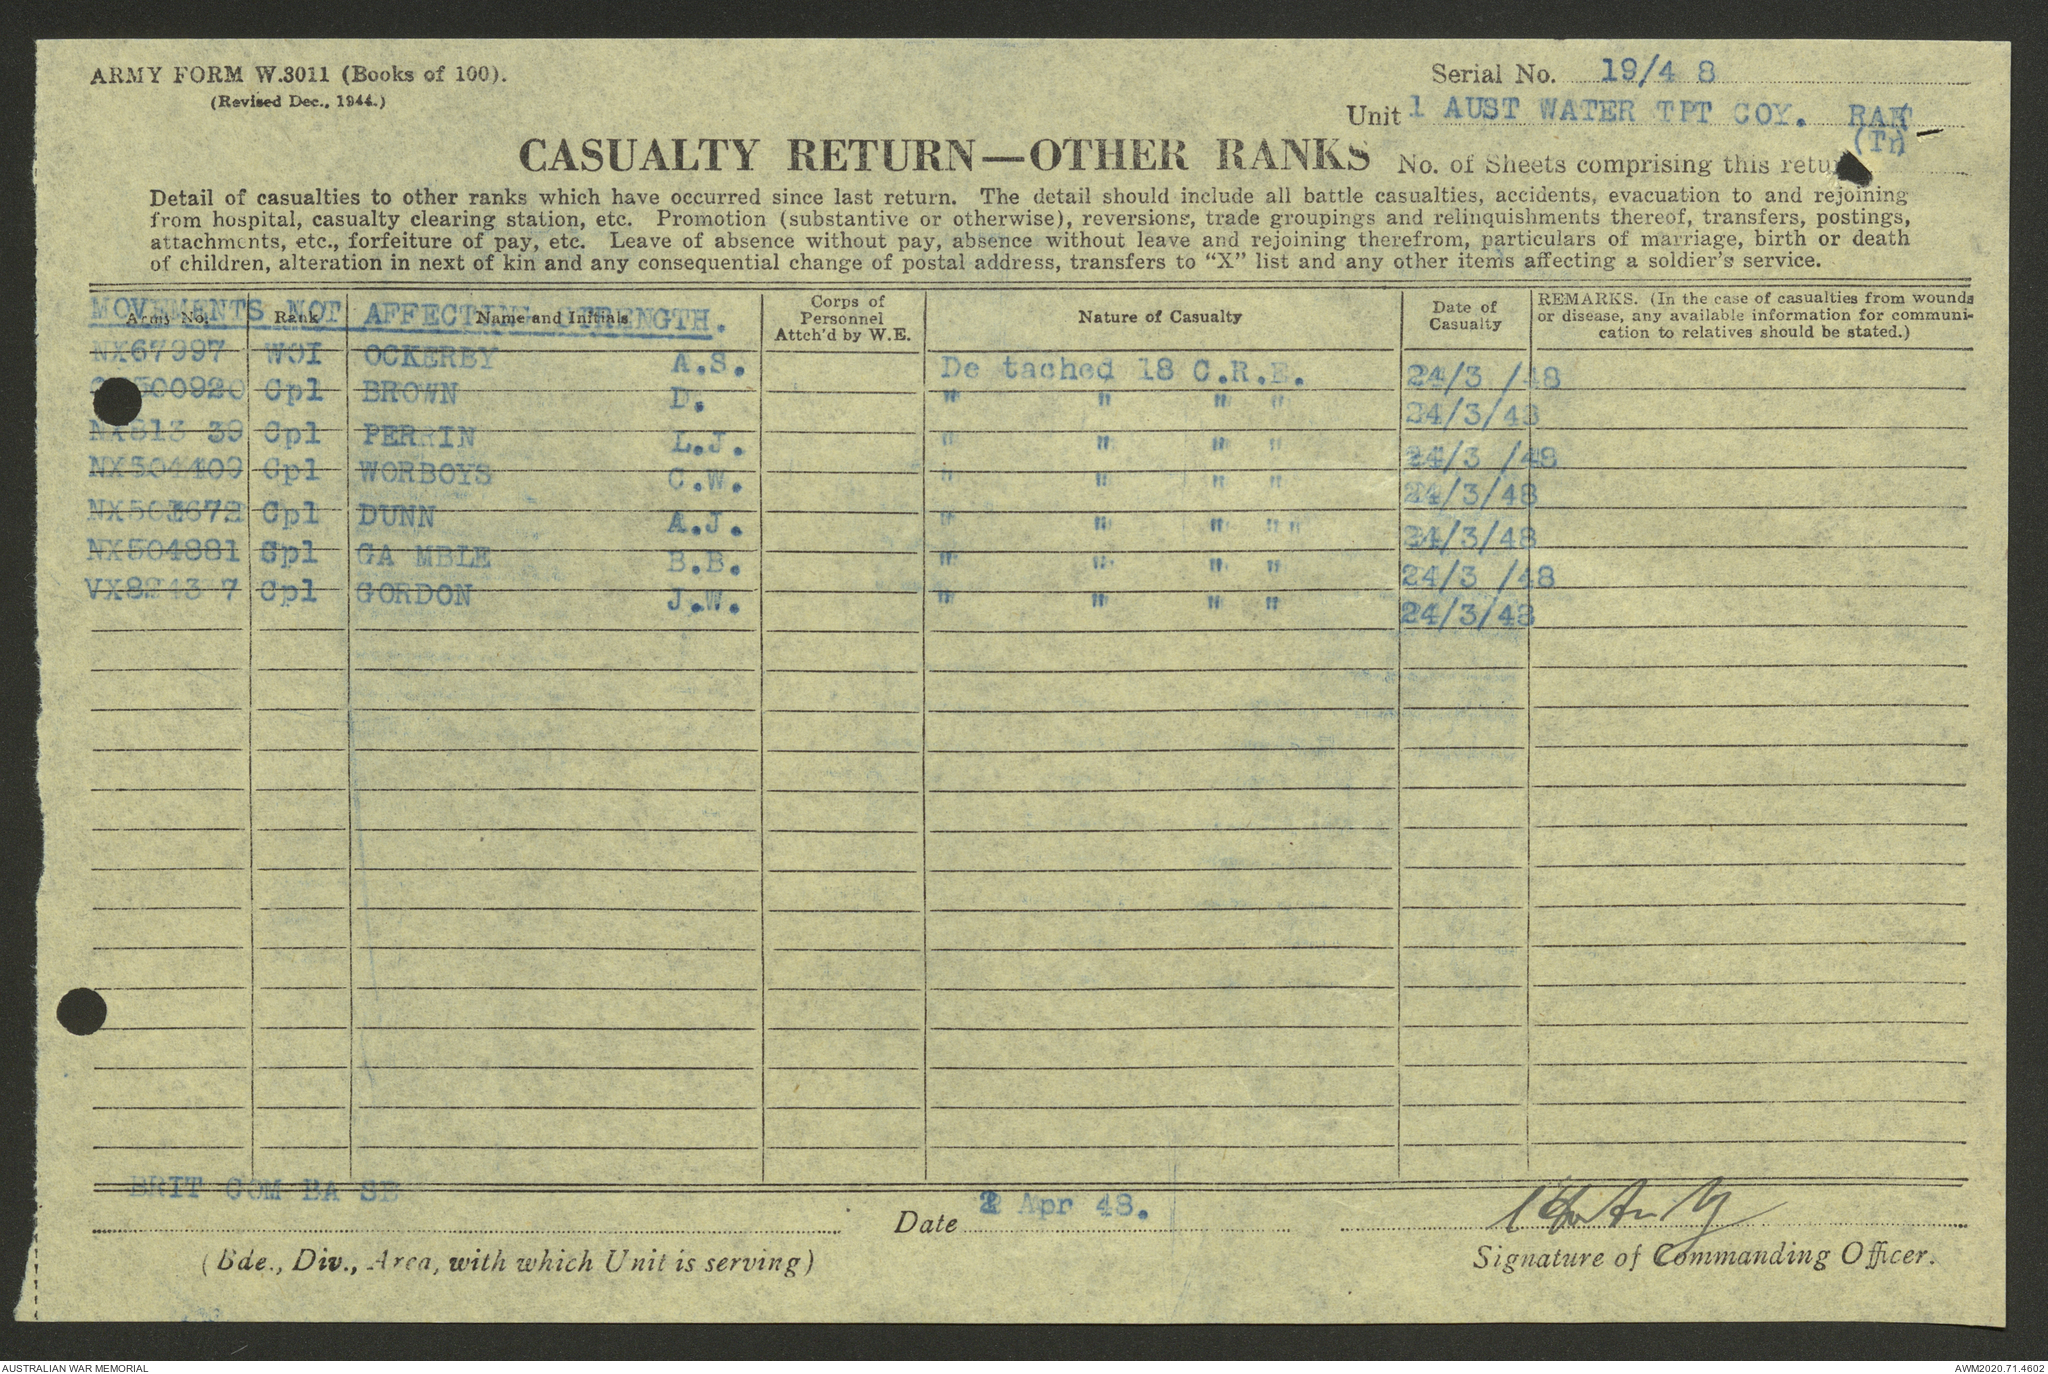 ARMY FORM W.3011 (Books of 100).
(Revised Dec., 1944.)
Serial No. 19/4 8
Unit 1 AUST WATER TPT COY. RAE
(Tn)
CASUALTY RETURN—OTHER RANKS
No. of Sheets comprising this return
Detail of casualties to other ranks which have occurred since last return. The detail should include all battle casualties, accidents, evacuation to and rejoining
from hospital, casualty clearing station, etc. Promotion (substantive or otherwise), reversions, trade groupings and relinquishments thereof, transfers, postings,
attachments, etc., forfeiture of pay, etc. Leave of absence without pay, absence without leave and rejoining therefrom, particulars of marriage, birth or death
of children, alteration in next of kin and any consequential change of postal address, transfers to “X” list and any other items affecting a soldier's service.
MOVEMENTS NOT AFFECTING STRENGTH.
Army No. Rank Name and Initials Corps of Personnel Attch'd by W.E. Nature of Casualty Date of Casualty REMARKS. (In the case of casualties from wounds or disease, any available information for communication to relatives should be stated.)
NX67997 WOI OCKERBY A.S. De tached 18 C.R.E. 24/3 /48
500920 Cpl BROWN D. " " " " 24/3/48
NX813 39 Cpl PERRIN L.J. " " " " 24/3 /48
NX504409 Cpl WORBOYS C.W. " " " " 24/3/48
Cpl DUNN A.J. " " " "" 24/3/48
NX504881 Cpl GA MBLE B.B. " " " " 24/3 /48
Cpl GORDON J.W. " " " " 24/3/48
BRIT COM BA SE
Date 2 Apr 48.
(Bde., Div., Area, with which Unit is serving)
Signature of Commanding Officer.
AUSTRALIAN WAR MEMORIAL
AWM2020.71.4602